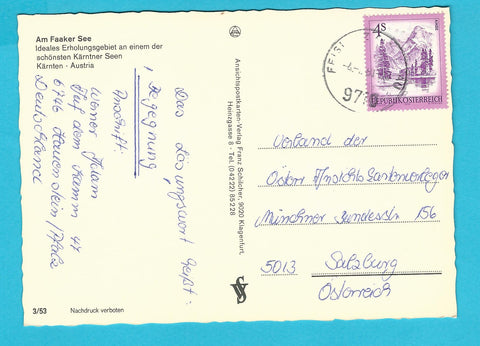 Am Faaker See
Ideales Erholungsgebiet an einem der
schönsten Kärntner Seen
Kärnten · Austria
Das Lösungswort heißt:
"Begegnung"
Anschrift:
Werner
Auf dem Kamm 47
6746 Hauenstein/Pfalz
Deutschland
3/53
Nachdruck verboten
Ansichtspostkarten-Verlag Franz Schilcher, 9020 Klagenfurt,
Heinzgasse 8 · Tel. (04222) 85228
4S
REPUBLIK ÖSTERREICH
Verband der
Österr. Ansichtskartenverleger
Münchner Bundesstr. 156
5013 Salzburg
Österreich